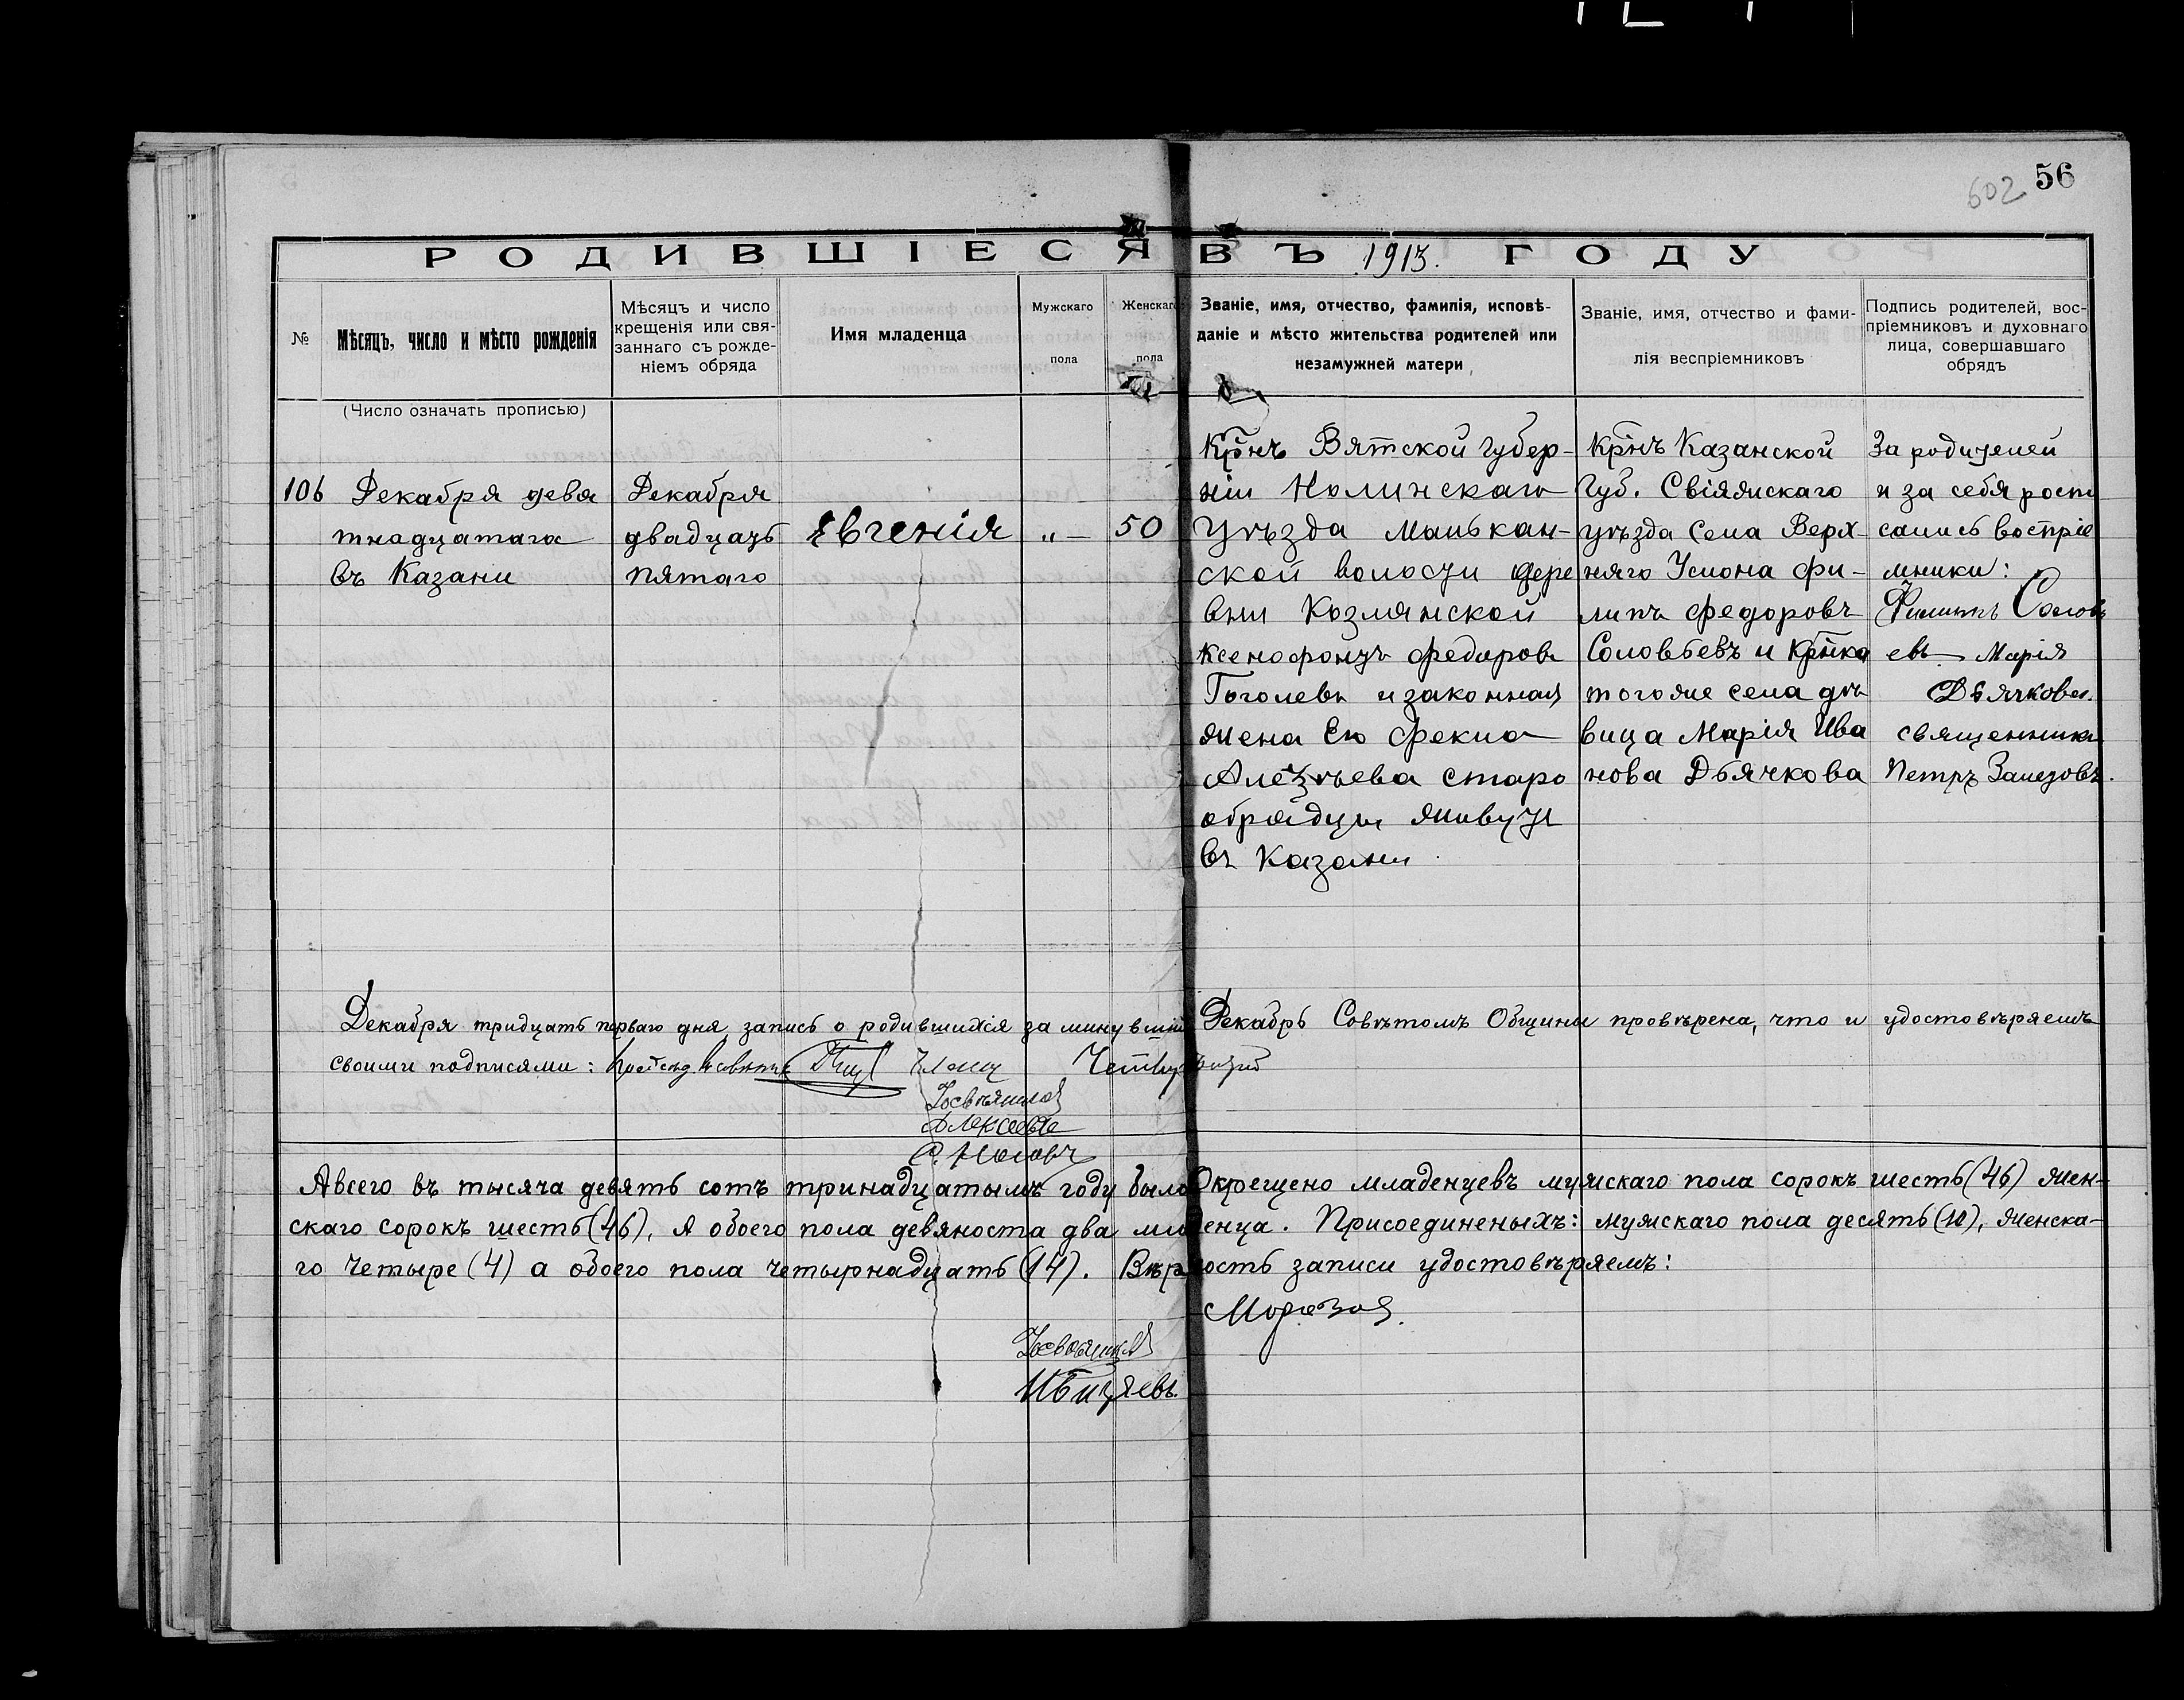 602 56
РОДИВШІЕСЯ ВЪ 1913. ГОДУ
№
Мѣсяцъ, число и мѣсто рожденія
(Число означать прописью)
Мѣсяцъ и число
крещенія или свя-
заннаго съ рожде-
ніемъ обряда
Имя младенца
Мужскаго
пола
Женскаго
пола
Званіе, имя, отчество, фамилія, исповѣ-
даніе и мѣсто жительства родителей или
незамужней матери
Званіе, имя, отчество и фами-
лія веспріемниковъ
Подпись родителей, вос-
пріемниковъ и духовнаго
лица, совершавшаго
обрядъ
106
Декабря девя
тнадцатаго
въ Казани
Декабря
двадцать
пятаго
Евгенія
„ —
50
Крнъ Вятской губер-
ніи Нолинскаго
Уѣзда Малькан-
ской волости дере
вни Козлянской
Ксенофонтъ Федоровъ
Гоголевъ и законная
жена Ею Фекла
Алеѯѣева старо
обрядцы живутъ
въ Казани
Крнъ Казанской
Губ. Свіяжскаго
уѣзда Села Верх-
няго Услона Фи-
липъ Федоровъ
Соловьевъ и Крнка
того же села дѣ
вица Марія Ива
нова Дьячкова
За родителей
и за себя роспи
сались воспріе
мники:
Филиппъ Соловь
евъ Марія
Дьячкова.
священникъ
Петръ Залетовъ.
Декабря тридцать перваго дня, запись о родившихся за минувшій Декабрь Совѣтомъ Общины провѣрена, что и удостовѣряемъ
своими подписями: Члены
Алексеевъ
С. Носовъ
А всего въ тысяча девять сотъ тринадцатымъ году было Окрещено младенцевъ мужскаго пола сорокъ шесть (46) жен-
скаго сорокъ шесть (46), А обоего пола девяноста два младенца. Присоединеныхъ: мужскаго пола десять (10), женска-
го четыре (4) а обоего пола четырнадцать (14). Вѣрность записи удостовѣряемъ:
Морозов